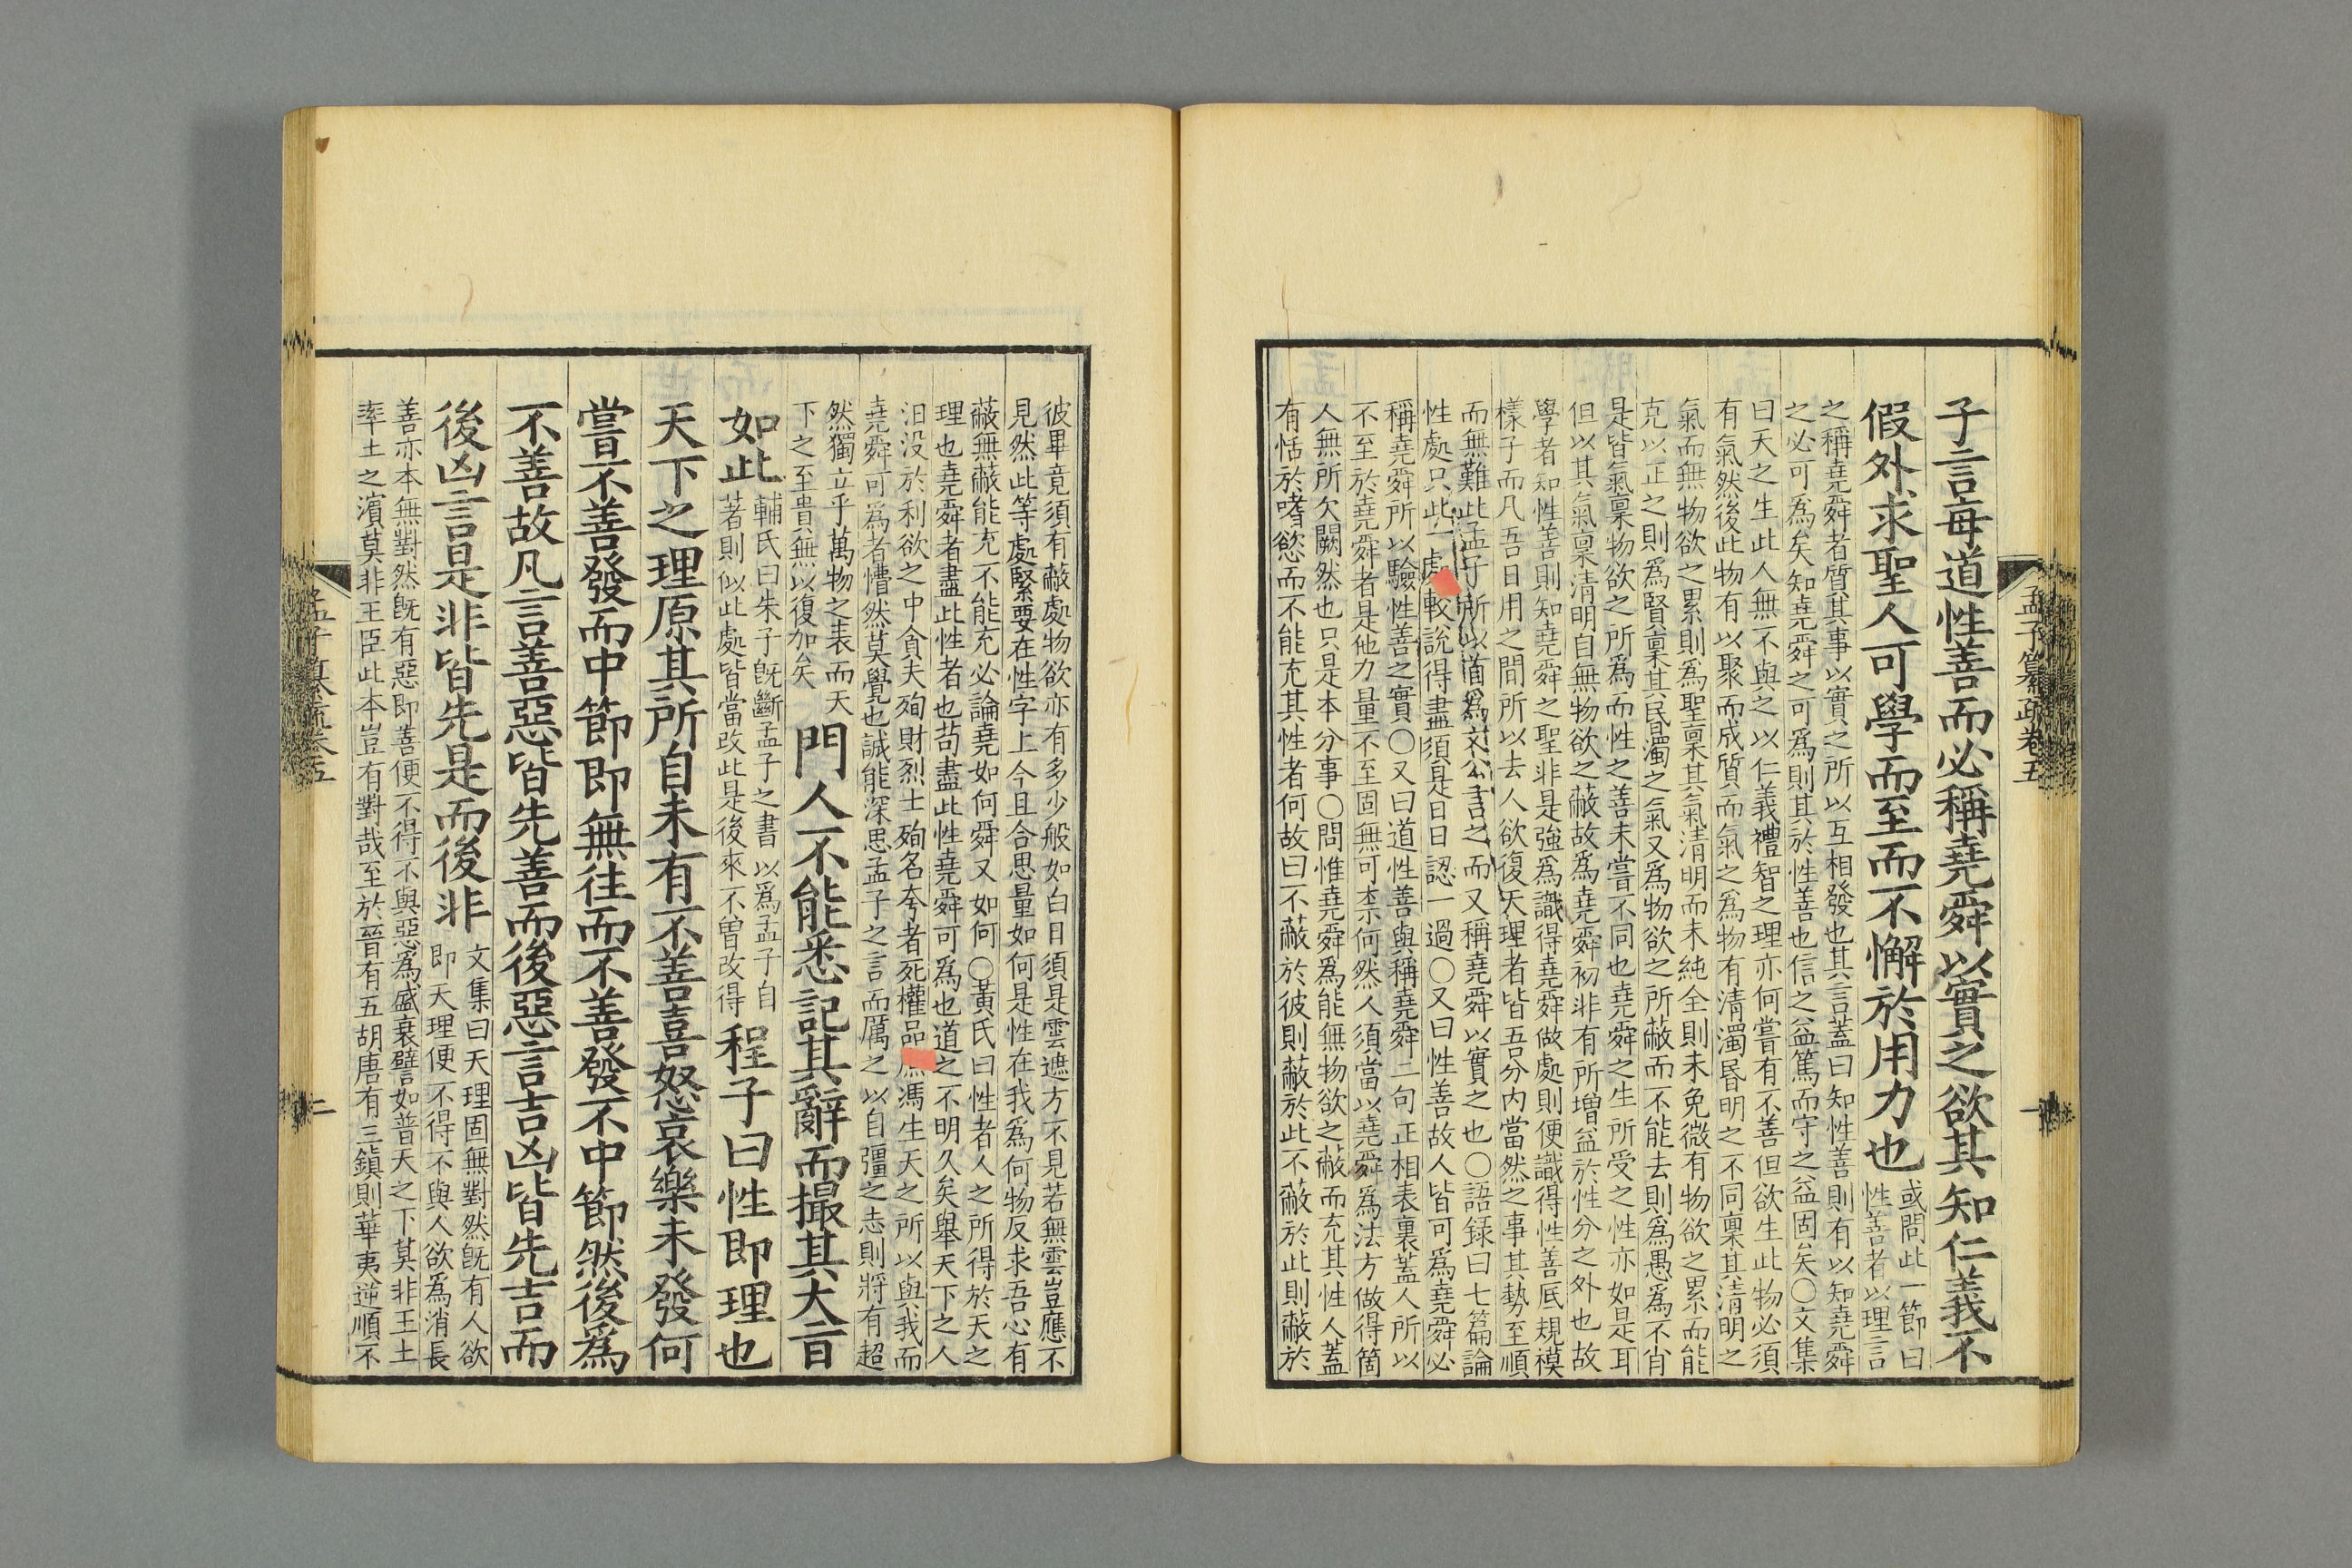 孟子纂疏卷五
一
子言每道性善而必稱堯舜以實之欲其知仁義不
假外求聖人可學而至而不懈於用力也
或問此一節曰
性善者以理言
之稱堯舜者質其事以實之所以互相發也其言蓋曰知性善則有以知堯舜
之必可爲矣知堯舜之可爲則其於性善也信之益篤而守之益固矣〇文集
曰天之生此人無不與之以仁義禮智之理亦何嘗有不善但欲生此物必須
有氣然後此物有以聚而成質而氣之爲物有清濁昬明之不同稟其清明之
氣而無物欲之累則爲聖稟其氣清明而未純全則未免微有物欲之累而能
克以正之則爲賢稟其昬濁之氣又爲物欲之所蔽而不能去則爲愚爲不肖
是皆氣稟物欲之所爲而性之善未嘗不同也堯舜之生所受之性亦如是耳
但以其氣稟清明自無物欲之蔽故爲堯舜初非有所增益於性分之外也故
學者知性善則知堯舜之聖非是強爲識得堯舜做處則便識得性善底規模
樣子而凡吾日用之間所以去人欲復天理者皆吾分內當然之事其勢至順
而無難此孟子所以首爲文公言之而又稱堯舜以實之也〇語錄曰七篇論
性處只此一處較說得盡須是日日認一過〇又曰性善故人皆可爲堯舜必
稱堯舜所以驗性善之實〇又曰道性善與稱堯舜二句正相表裏蓋人所以
不至於堯舜者是他力量不至固無可柰何然人須當以堯舜爲法方做得箇
人無所欠闕然也只是本分事〇問惟堯舜爲能無物欲之蔽而充其性人蓋
有恬於嗜慾而不能充其性者何故曰不蔽於彼則蔽於此不蔽於此則蔽於
彼畢竟須有蔽處物欲亦有多少般如白日須是雲遮方不見若無雲豈應不
見然此等處緊要在性字上今且合思量如何是性在我爲何物反求吾心有
蔽無蔽能充不能充必論堯如何舜又如何〇黃氏曰性者人之所得於天之
理也堯舜者盡此性者也苟盡此性堯舜可爲也道之不明久矣舉天下之人
汨没於利欲之中貪夫殉財烈士殉名夸者死權品庶馮生天之所以與我而
堯舜可爲者懵然莫覺也誠能深思孟子之言而厲之以自彊之志則將有超
然獨立乎萬物之表而天
下之至貴無以復加矣
門人不能悉記其辭而撮其大㫖
如此
輔氏曰朱子旣斷孟子之書以爲孟子自
著則似此處皆當改此是後來不曾改得
程子曰性即理也
天下之理原其所自未有不善喜怒哀樂未發何
嘗不善發而中節即無往而不善發不中節然後爲
不善故凡言善惡皆先善而後惡言吉凶皆先吉而
後凶言是非皆先是而後非
文集曰天理固無對然旣有人欲
即天理便不得不與人欲爲消長
善亦本無對然旣有惡即善便不得不與惡爲盛衰譬如普天之下莫非王土
率土之濵莫非王臣此本豈有對哉至於晉有五胡唐有三鎮則華夷逆順不
孟子纂疏卷五
二